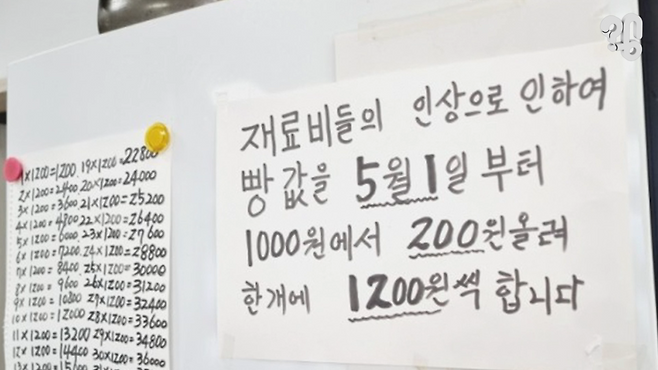 재료비들의 인상으로 인하여
빵 값을 5월1일 부터
1000원에서 200원올려
한개에 1200원씩 합니다
1×1200=1200 19×1200=22800
2×1200=2400 20×1200=24000
3×1200=3600 21×1200=25200
4×1200=4800 22×1200=26400
5×1200=6000 23×1200=27600
6×1200=7200 24×1200=28800
7×1200=8400 25×1200=30000
8×1200=9600 26×1200=31200
9×1200=10800 27×1200=32400
10×1200=12000 28×1200=33600
11×1200=13200 29×1200=34800
12×1200=14400 30×1200=36000